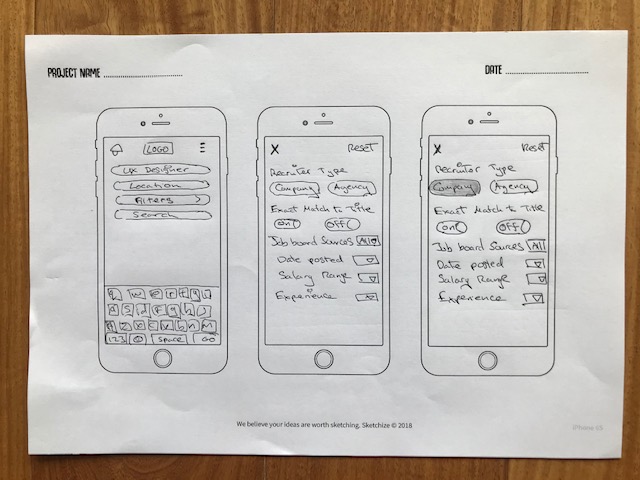 PROJECT NAME ........................
DATE ........................
LOGO
UX Designer
Location
Filters >
Search
123
SPACE
GO
X Reset
Recruiter Type
Company Agency
Exact Match to Title
ON OFF
Job board Sources All
Date posted
Salary Range
Experience
X Reset
Recruitor Type
Company Agency
Exact Match to Title
ON OFF
Job board Sources All
Date posted
Salary Range
Experience
We believe your ideas are worth sketching. Sketchize © 2018